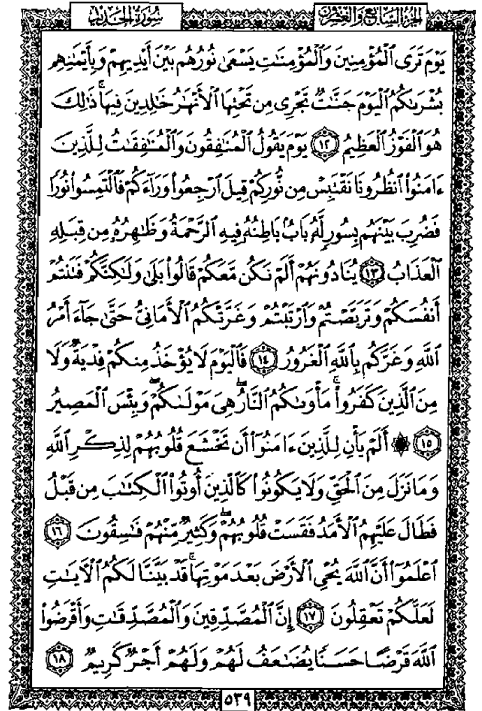 الجزء السابع والعشرون
سورة الحديد
يَوْمَ تَرَى الْمُؤْمِنِينَ وَالْمُؤْمِنَاتِ يَسْعَىٰ نُورُهُم بَيْنَ أَيْدِيهِمْ وَبِأَيْمَانِهِم
بُشْرَاكُمُ الْيَوْمَ جَنَّاتٌ تَجْرِي مِن تَحْتِهَا الْأَنْهَارُ خَالِدِينَ فِيهَا ۚ ذَٰلِكَ
هُوَ الْفَوْزُ الْعَظِيمُ ١٢ يَوْمَ يَقُولُ الْمُنَافِقُونَ وَالْمُنَافِقَاتُ لِلَّذِينَ
ءَامَنُوا انظُرُونَا نَقْتَبِسْ مِن نُّورِكُمْ قِيلَ ارْجِعُوا وَرَاءَكُمْ فَالْتَمِسُوا نُورًا
فَضُرِبَ بَيْنَهُم بِسُورٍ لَّهُ بَابٌ بَاطِنُهُ فِيهِ الرَّحْمَةُ وَظَاهِرُهُ مِن قِبَلِهِ
الْعَذَابُ ١٣ يُنَادُونَهُمْ أَلَمْ نَكُن مَّعَكُمْ قَالُوا بَلَىٰ وَلَٰكِنَّكُمْ فَتَنتُمْ
أَنفُسَكُمْ وَتَرَبَّصْتُمْ وَارْتَبْتُمْ وَغَرَّتْكُمُ الْأَمَانِيُّ حَتَّىٰ جَاءَ أَمْرُ
اللَّهِ وَغَرَّكُم بِاللَّهِ الْغَرُورُ ١٤ فَالْيَوْمَ لَا يُؤْخَذُ مِنكُمْ فِدْيَةٌ وَلَا
مِنَ الَّذِينَ كَفَرُوا ۚ مَأْوَاكُمُ النَّارُ ۖ هِيَ مَوْلَاكُمْ ۖ وَبِئْسَ الْمَصِيرُ
١٥ ۞ أَلَمْ يَأْنِ لِلَّذِينَ ءَامَنُوا أَن تَخْشَعَ قُلُوبُهُمْ لِذِكْرِ اللَّهِ
وَمَا نَزَلَ مِنَ الْحَقِّ وَلَا يَكُونُوا كَالَّذِينَ أُوتُوا الْكِتَابَ مِن قَبْلُ
فَطَالَ عَلَيْهِمُ الْأَمَدُ فَقَسَتْ قُلُوبُهُمْ ۖ وَكَثِيرٌ مِّنْهُمْ فَاسِقُونَ ١٦
اعْلَمُوا أَنَّ اللَّهَ يُحْيِ الْأَرْضَ بَعْدَ مَوْتِهَا ۚ قَدْ بَيَّنَّا لَكُمُ الْآيَاتِ
لَعَلَّكُمْ تَعْقِلُونَ ١٧ إِنَّ الْمُصَّدِّقِينَ وَالْمُصَّدِّقَاتِ وَأَقْرَضُوا
اللَّهَ قَرْضًا حَسَنًا يُضَاعَفُ لَهُمْ وَلَهُمْ أَجْرٌ كَرِيمٌ ١٨
٥٣٩